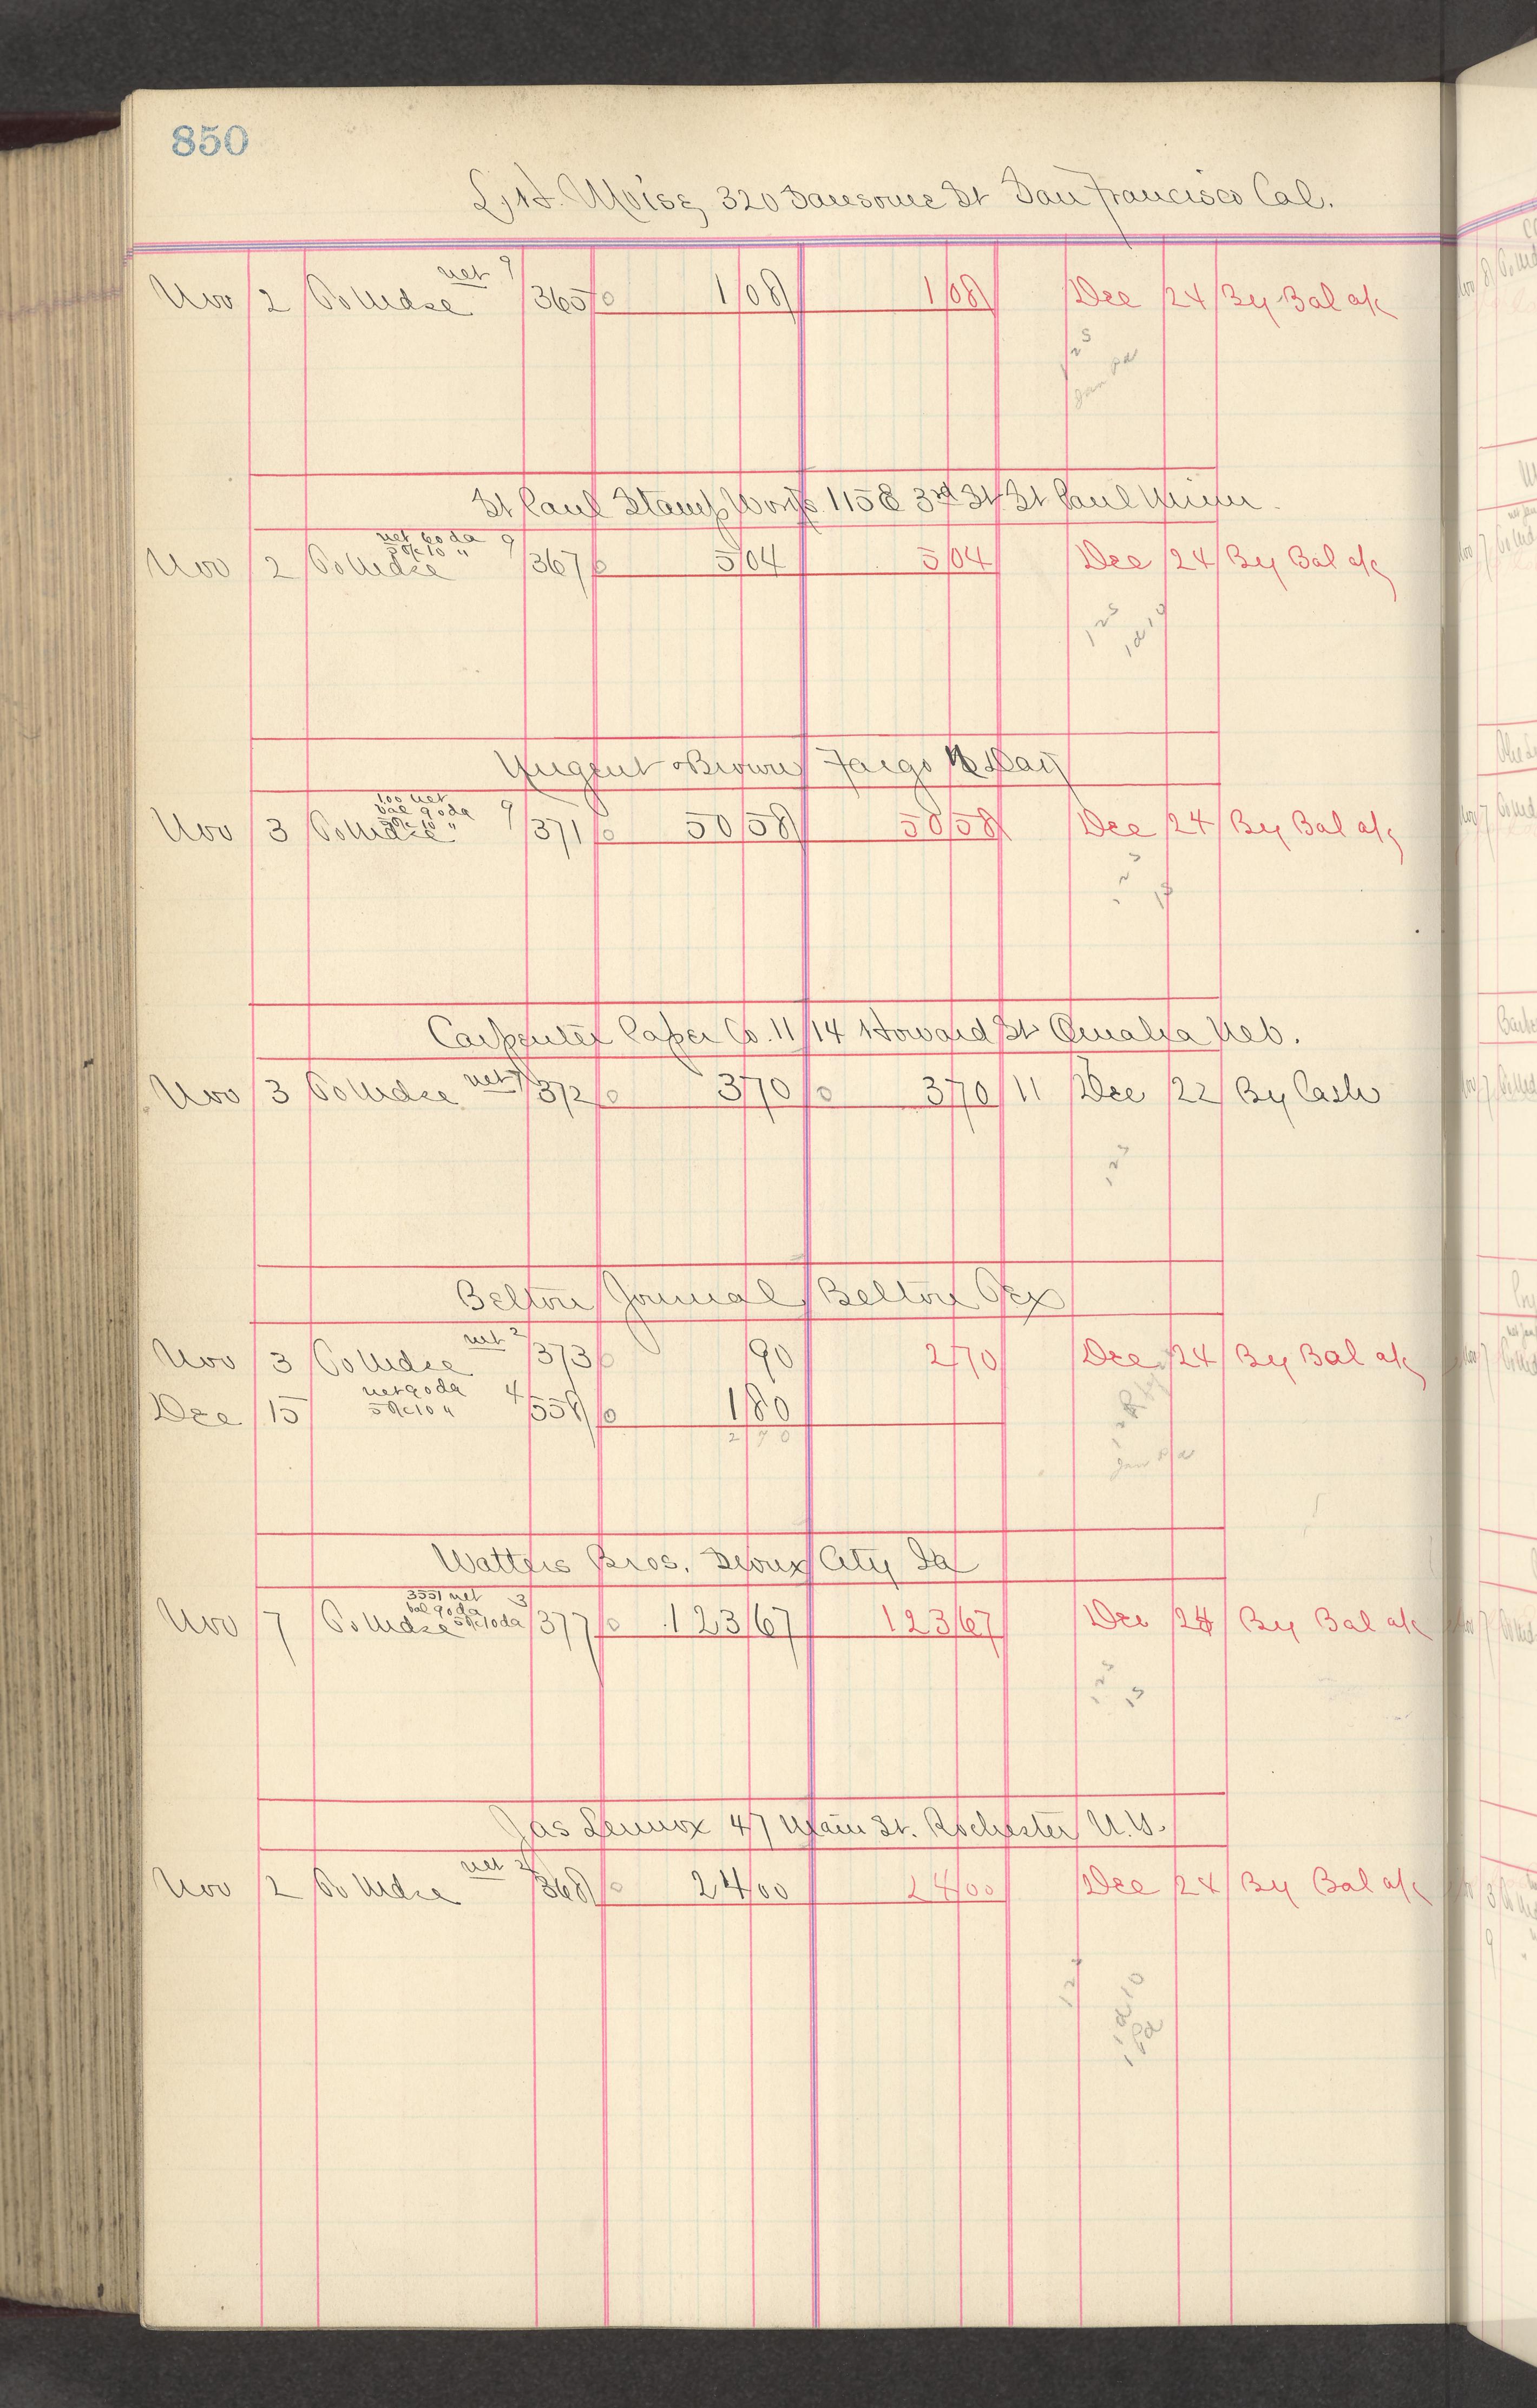 850
L. H. Moise, 320 Sansome St San Francisco Cal.
Nov 2 To Mdse net 9 365 1 08 1 08 Dec 24 By Bal a/c
1 2 3
Jan Pd
St Paul Stamp Works 115 E 3rd St St Paul Minn.
net 60 da 9
5% 10 "
Nov 2 To Mdse 367 5 04 5 04 Dec 24 By Bal a/c
1 2 3
Nugent & Brown Fargo N. Dak
100 net 9
bal 90 da
5% 10 "
Nov 3 To Mdse 371 50 58 50 58 Dec 24 By Bal a/c
1 2 3
15
Carpenter Paper Co. 1114 Howard St Omaha Neb.
Nov 3 To Mdse net 372 3 70 3 70 11 Dec 22 By Cash
1 2 3
Belton Journal Belton Tex
Nov 3 To Mdse net 2 373 90 2 70 Dec 24 By Bal a/c
Dec 15 net 90 da 4 558 1 80
5% 10 "
2 70
Jan Pd
Watters Bros. Sioux City Ia
3551 net 3
bal 90 da
Nov 7 To Mdse 5% 10 da 377 123 67 123 67 Dec 24 By Bal a/c
1 2 3
15
Jas Lennox 47 Main St. Rochester N.Y.
Nov 2 To Mdse net 2 368 24 00 24 00 Dec 24 By Bal a/c